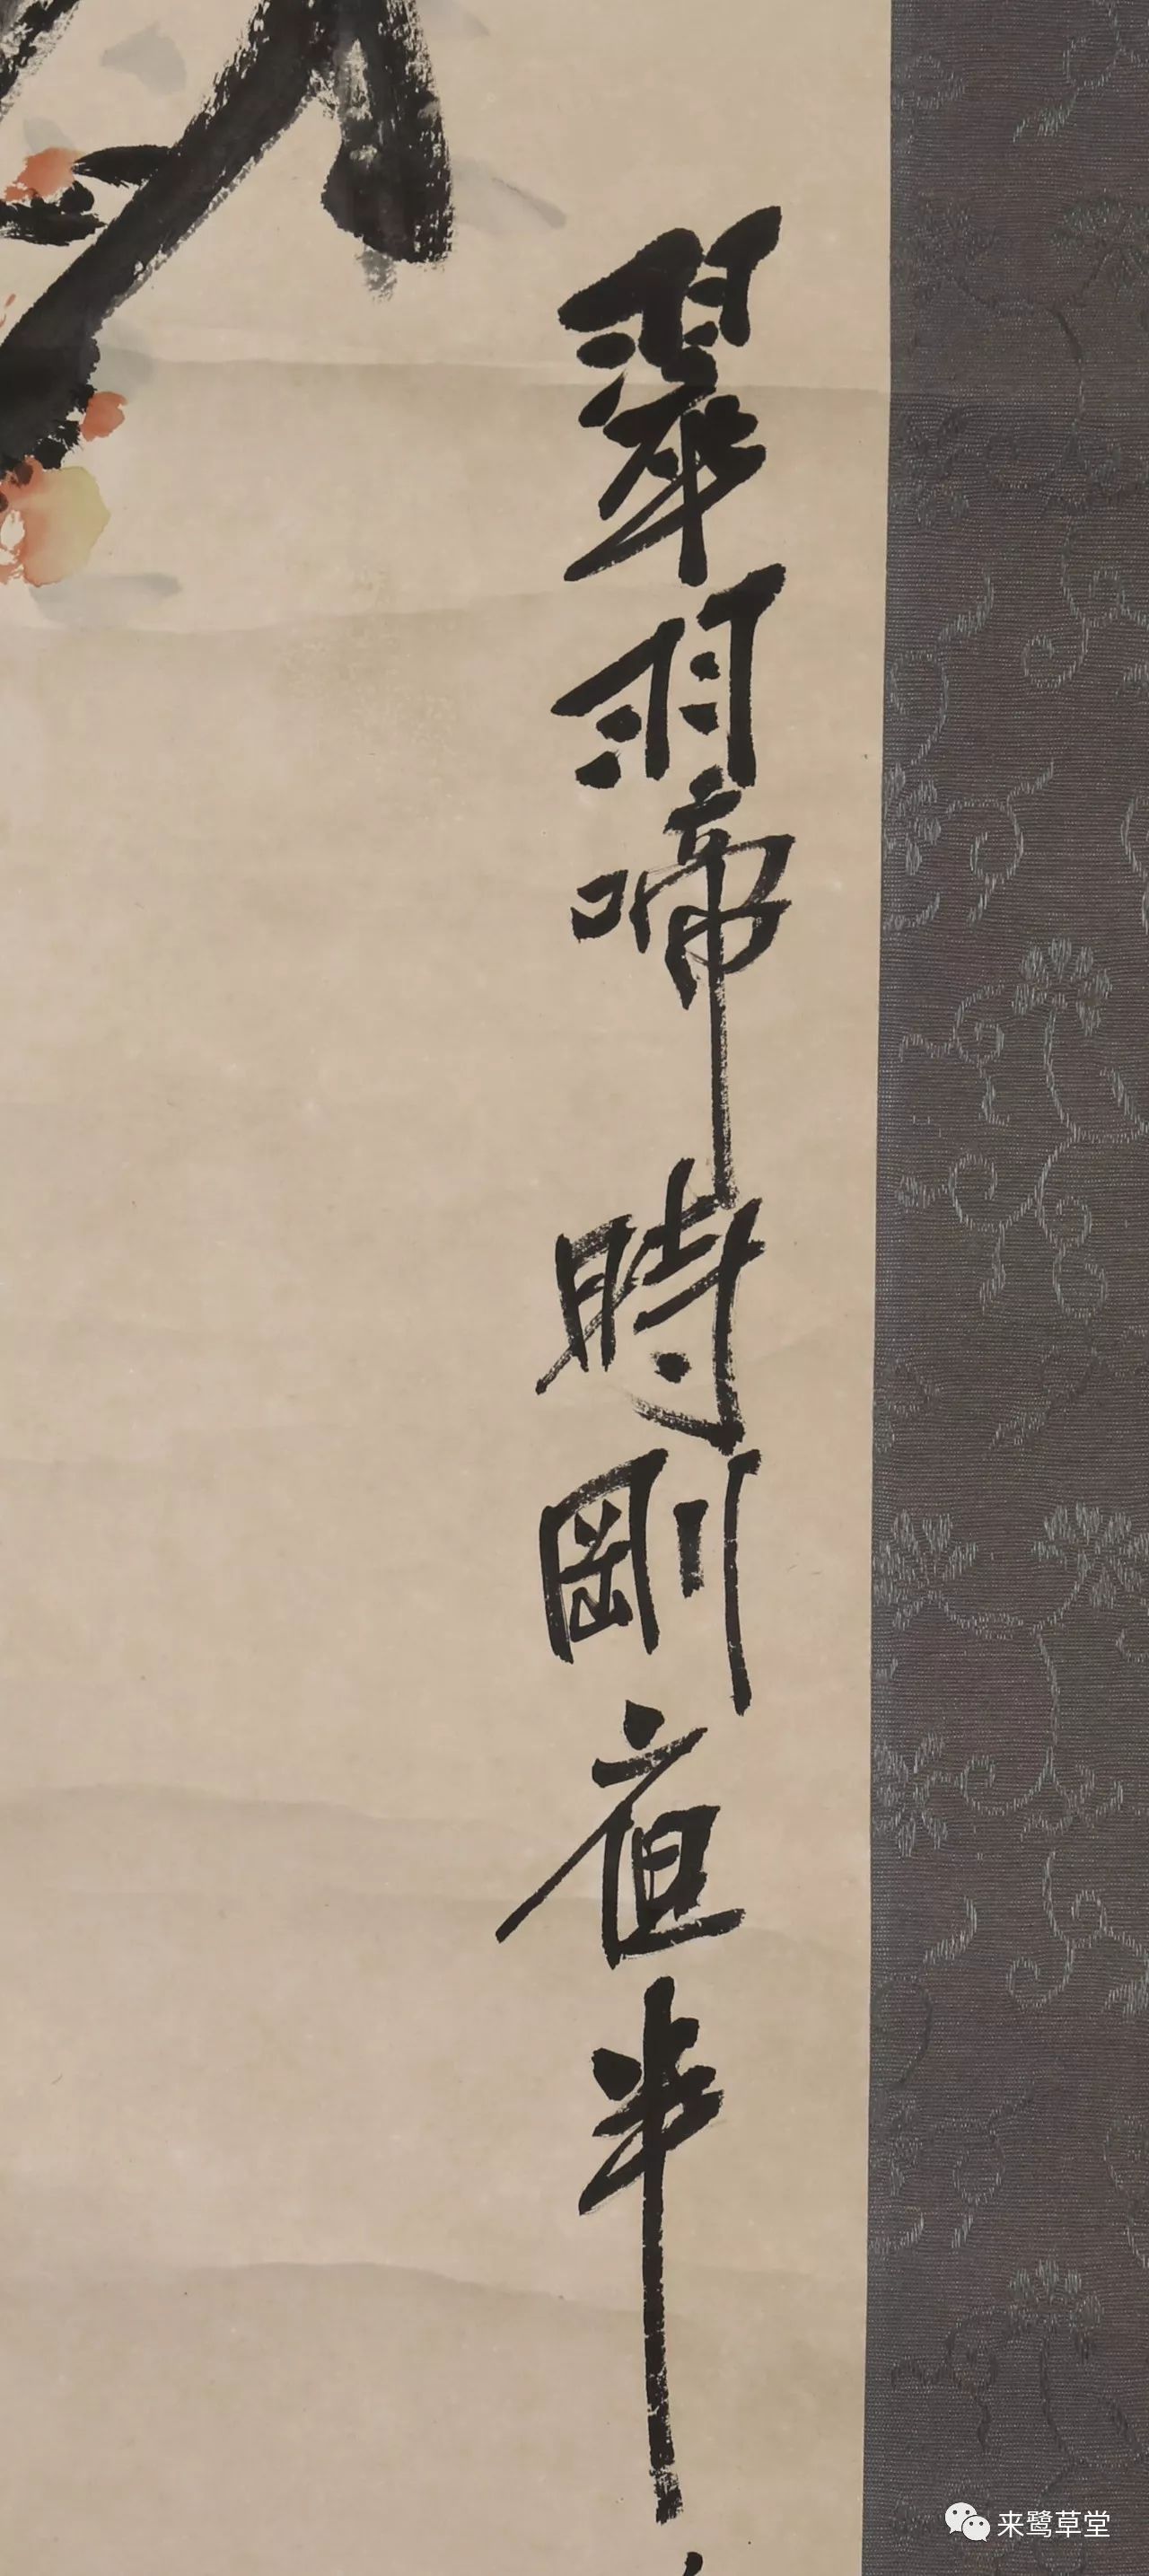 翠羽啼時剛夜半
来鹭草堂